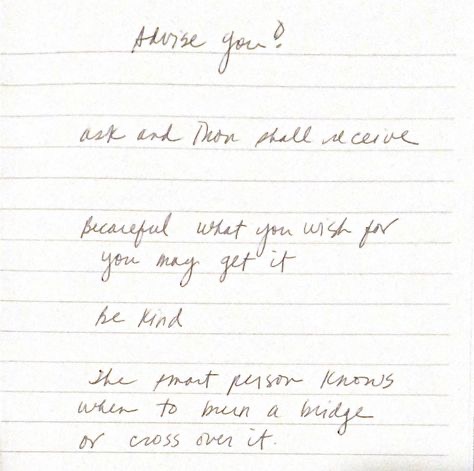 Advise you?
ask and Thou shall receive
Becareful what you wish for
you may get it
be kind
The smart person knows
when to burn a bridge
or cross over it.